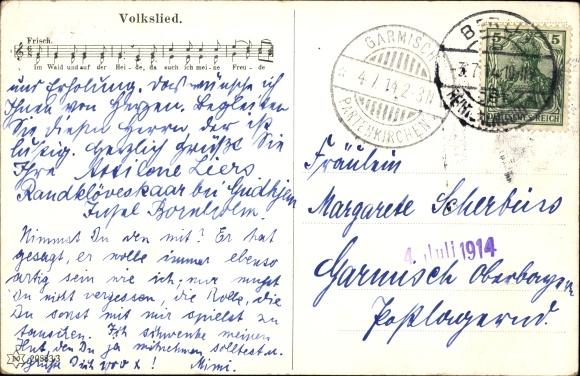 Volkslied.
Frisch.
Im Wald und auf der Hei - de, da such ich mei - ne Freu - de
und Erholung, das wünsche ich
Ihnen von Herzen. Begleiten
Sie diesen Herrn, der ist
lustig. Herzlich grüßt Sie
Ihre Liers
Randklöveskaar bei Gudhjem
Insel Bornholm.
Nimmst Du den mit? Er hat
gesagt, er wolle immer ebenso
artig sein wie ich, nur mußt
Du nicht vergessen, die Rolle, die
Du sonst mit mir spielst zu
tauschen. Ich schwenke meinen
Hut, den Du ja mitnehmen solltest u.
grüße Dich 1000 x! Mimi.
20883/3
GARMISCH
4.7.14.2-3N
PARTENKIRCHEN
BERLIN
3.7.14
5 5
DEUTSCHES REICH
Fräulein
Margarete Scherbius
4. Juli 1914
Garmisch Oberbayern
Postlagernd.